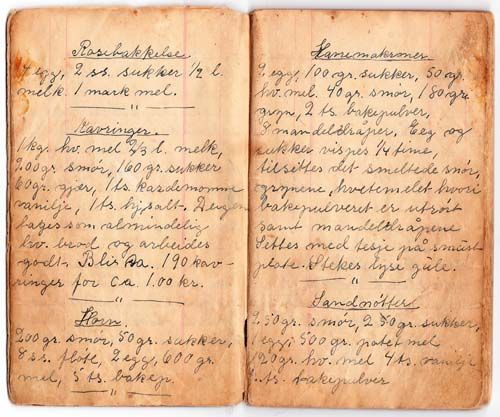 Rosebakkelse
4 egg, 2 ss. sukker 1/2 l.
melk. 1 mark mel.
Kavringer.
1 kg. hv. mel 2/3 l. melk,
200 gr. smör, 160 gr. sukker
60 gr. gjær, 1 ts. kardemomme
vanilje, 1 ts. hj. salt. Deigen
lages som almindelig
hv. brod og arbeides
godt. Blir ca. 190 kav-
ringer for ca. 1.00 kr.
Horn.
200 gr. smör, 50 gr. sukker,
8 ss. flöte, 2 egg, 600 gr.
mel, 5 ts. bakep.
Hanemakroner
2 egg, 100 gr. sukker, 50 gr.
hv. mel. 40 gr. smör, 180 gr.
gryn, 2 ts. bakepulver,
8 mandeldråper. Egg og
sukker vispes 1/4 time,
tilsettes det smeltede smör,
grynene, hvetemelet hvori
bakepulveret er utrört
samt mandeldråpene
Settes med tesje på smurt
plate. Stekes lyse gule.
Sandnötter
250 gr. smör, 250 gr. sukker,
1 egg, 500 gr. potet mel
120 gr. hv. mel 4 ts. vanilje
ts. bakepulver